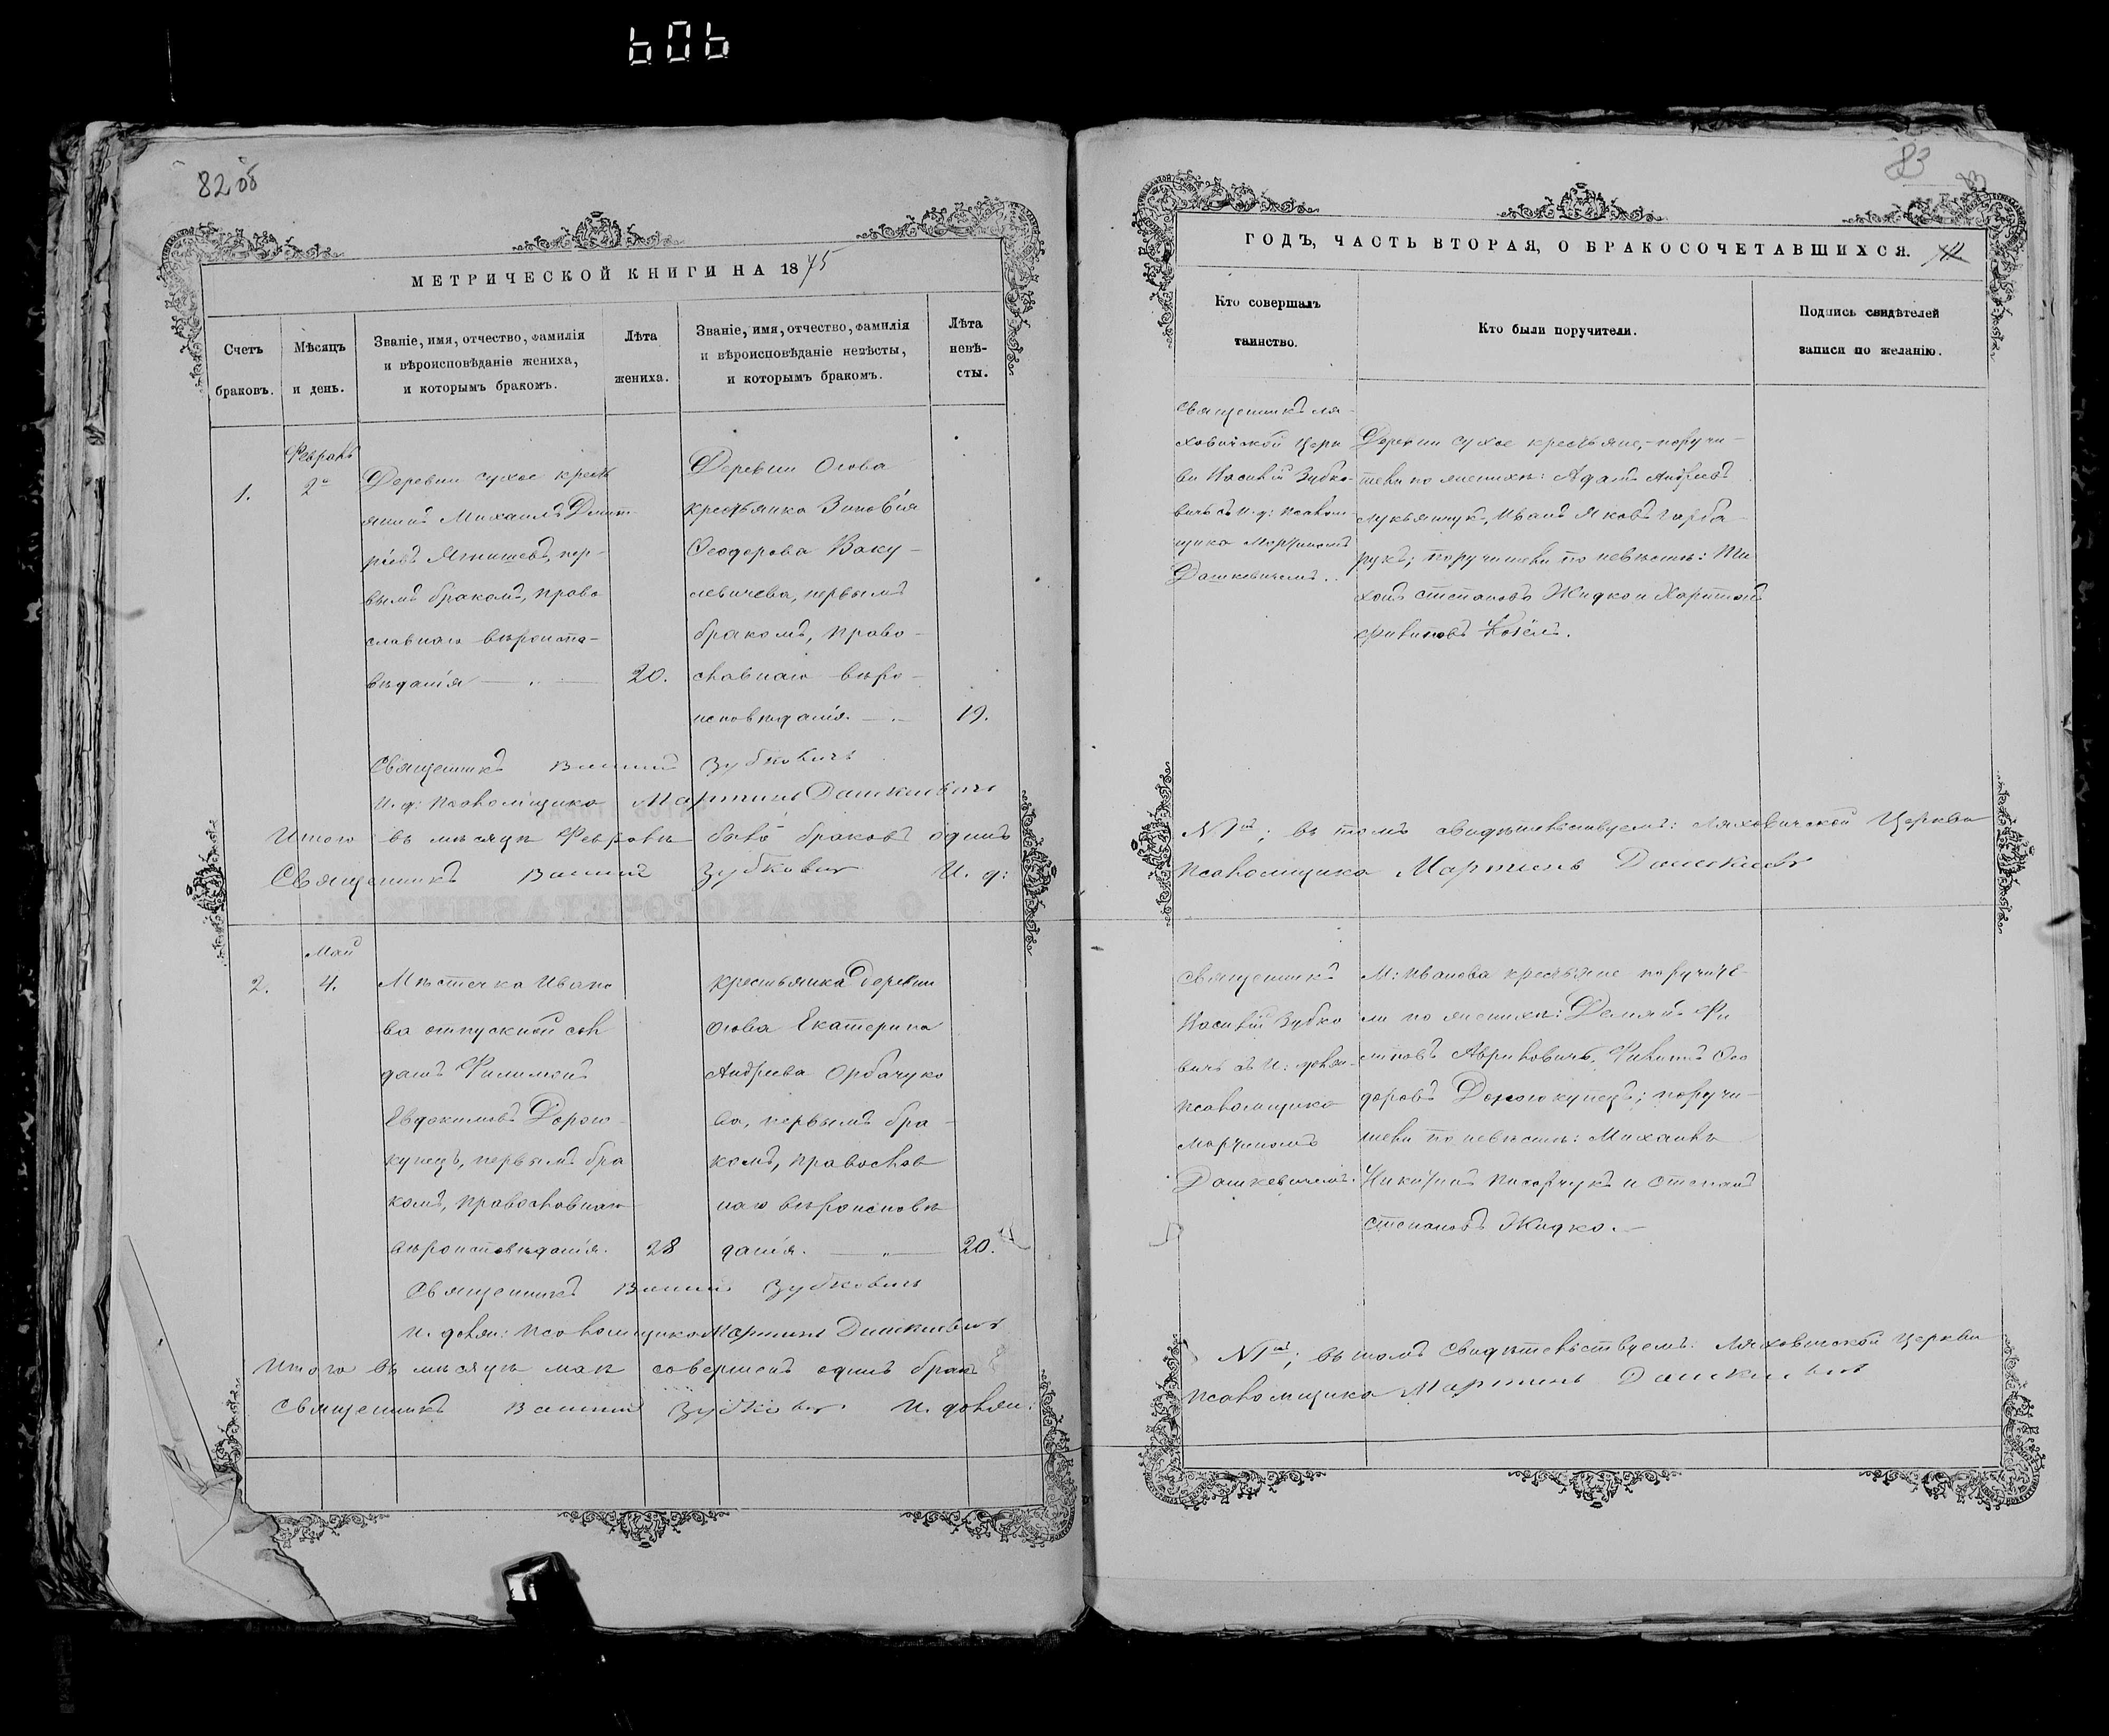 606
82 об
МЕТРИЧЕСКОЙ КНИГИ НА 1875
Счетъ браковъ.
Мѣсяцъ и день.
Званіе, имя, отчество, фамилія
и вѣроисповѣданіе жениха,
и которымъ бракомъ.
Лѣта жениха.
Званіе, имя, отчество, фамилія
и вѣроисповѣданіе невѣсты,
и которымъ бракомъ.
Лѣта невѣ-
сты.
1.
Февраль
2е
Деревни Сухое кресть
янинъ Михаилъ Дмит
ріевъ пер-
вымъ бракомъ, право
славнаго вѣроиспо-
вѣданія
20.
Деревни Огова
крестьянка Зиновія
Ѳеодорова Ваку-
левичева, первымъ
бракомъ, право-
славнаго вѣро-
исповѣданія.
19.
Священникъ Василій Зубковичъ
И. д: псаломщика Мартинъ Дашкевичъ
Итого въ мѣсяцѣ Февралѣ браковъ одинъ
Священникъ Василій Зубковичъ И. д:
Май
2.
4.
Мѣстечка Ивано
ва отпускной сол
датъ Филимонъ
Евдокимовъ Дорого-
купецъ, первымъ бра
комъ, православнаго
вѣроисповѣданія.
28
Крестьянка деревни
Огова Екатерина
Андреева Орбачуко
ва, первымъ бра-
комъ, православ
наго вѣроисповѣ
данія.
20.
Священникъ Василій Зубковичъ
И. долж: псаломщика Мартинъ Дашкевичъ
Итого въ мѣсяцѣ маѣ совершенъ одинъ бракъ
Священникъ Василій Зубковичъ. И. должн:
83
83
ГОДЪ, ЧАСТЬ ВТОРАЯ, О БРАКОСОЧЕТАВШИХСЯ.
Кто совершалъ
таинство.
Кто были поручители.
Подпись свидѣтелей
записи по желанію.
Священникъ Ля-
ховичской церк
ви Василій Зубко-
вичъ съ И. д: псалом-
щика Мартиномъ
Дашкевичемъ.
Деревни Сухое крестьяне,-поручи-
тели по женихѣ: Адамъ Андреевъ
Лукьянчукъ, Иванъ Яковъ Горба-
рукъ; поручители по невѣстѣ: Ти
хонъ Степановъ Жидко и Харитонъ
Филиповъ Козёлъ.
№1й; въ томъ свидѣтельствуемъ: Ляховичской Церкви
псаломщика Мартинъ Дашкевичъ
Священникъ
Василій Зубко
вичъ съ И: должн-
псаломщика
Мартиномъ
Дашкевичемъ.
М: Иванова крестьяне поручите-
ли по женихѣ: Демянъ Фи
липовъ Авриловичъ, Филипъ Ѳео
доровъ Дорогокупецъ; поручи-
тели по невѣстѣ: Михаилъ
Никитинъ Писарчукъ и Степанъ
Степановъ Жидко.-
№1й; въ томъ свидѣтельствуемъ: Ляховичской Церкви
псаломщика Мартинъ Дашкевичъ